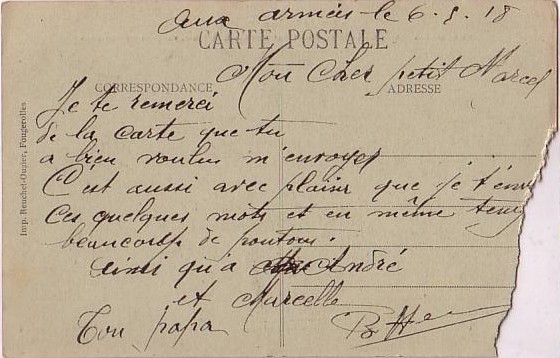 Aux armées le 6. 8. 18
CARTE POSTALE
Mon Cher petit Marcel
CORRESPONDANCE
ADRESSE
Je te remerci
de la carte que tu
a bien voulus m'envoyer
C'est aussi avec plaisir que je t'env
Ces quelques mots et en même temp
beaucoup de
ainsi qu'a André
et Marcelle
Ton papa
Imp. Beuchet-Ougier, Fougerolles